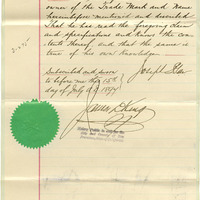 owner of the Trade Mark and Name
hereinbefore mentioned and described
That he has read the foregoing
and specifications and knows the con-
tents thereof, and that the same is
true of his own knowledge.
Subscribed and sworn
to before me this 15th
day of July A.D. 1894
Joseph
James D. King
Notary Public in and for the